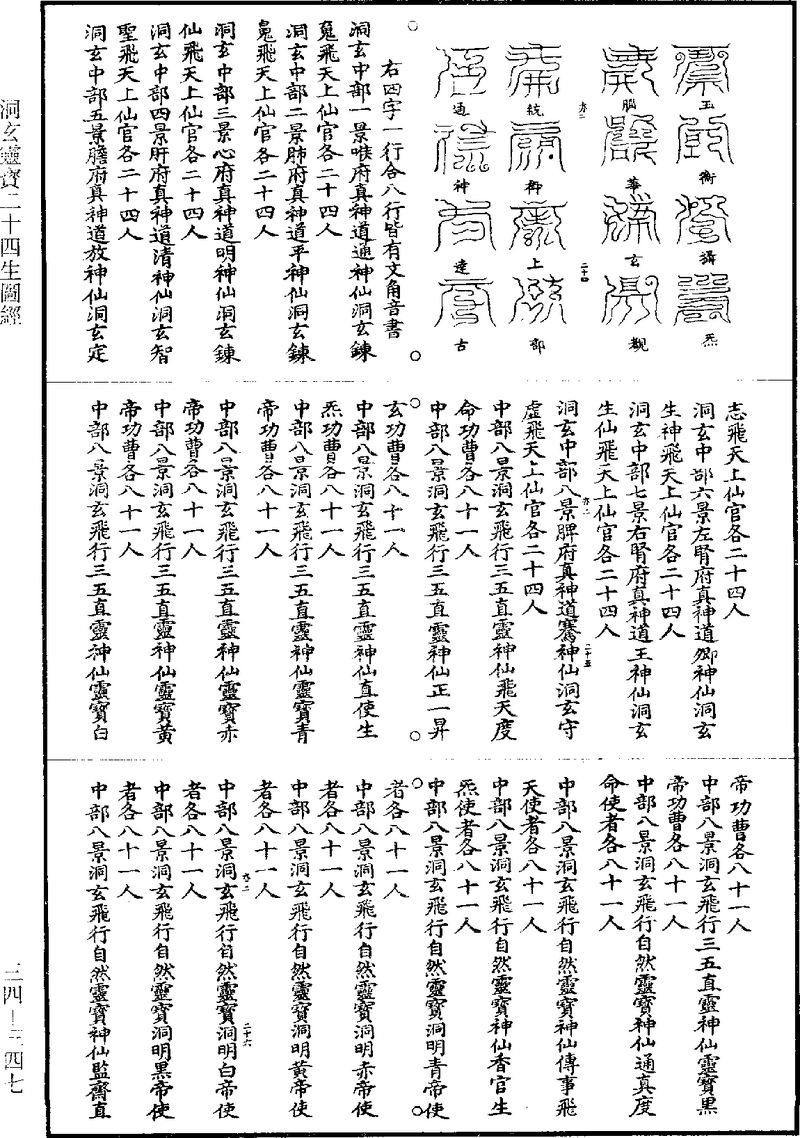 玉衡攝炁
腦華玄觀
統御上部
通神達古
右四字一行合八行皆有文角音書
洞玄中部一景喉府真神道通神仙洞玄鍊
䰟飛天上仙官各二十四人
洞玄中部二景肺府真神道平神仙洞玄鍊
䰟飛天上仙官各二十四人
洞玄中部三景心府真神道明神仙洞玄鍊
仙飛天上仙官各二十四人
洞玄中部四景肝府真神道清神仙洞玄智
聖飛天上仙官各二十四人
洞玄中部五景膽府真神道放神仙洞玄定
志飛天上仙官各二十四人
洞玄中部六景左腎府真神道神仙洞玄
生神飛天上仙官各二十四人
洞玄中部七景右腎府真神道王神仙洞玄
生仙飛天上仙官各二十四人
洞玄中部八景脾府真神道騫神仙洞玄守
虛飛天上仙官各二十四人
中部八景洞玄飛行三五直靈神仙飛天度
命功曹各八十一人
中部八景洞玄飛行三五直靈神仙正一昇
玄功曹各八十一人
中部八景洞玄飛行三五直靈神仙直使生
炁功曹各八十一人
中部八景洞玄飛行三五直靈神仙靈寶青
帝功曹各八十一人
中部八景洞玄飛行三五直靈神仙靈寶赤
帝功曹各八十一人
中部八景洞玄飛行三五直靈神仙靈寶黃
帝功曹各八十一人
中部八景洞玄飛行三五直靈神仙靈寶白
帝功曹各八十一人
中部八景洞玄飛行三五直靈神仙靈寶黑
帝功曹各八十一人
中部八景洞玄飛行自然靈寶神仙通真度
命使者各八十一人
中部八景洞玄飛行自然靈寶神仙傳事飛
天使者各八十一人
中部八景洞玄飛行自然靈寶神仙香官生
炁使者各八十一人
中部八景洞玄飛行自然靈寶洞明青帝使
者各八十一人
中部八景洞玄飛行自然靈寶洞明赤帝使
者各八十一人
中部八景洞玄飛行自然靈寶洞明黃帝使
者各八十一人
中部八景洞玄飛行自然靈寶洞明白帝使
者各八十一人
中部八景洞玄飛行自然靈寶洞明黑帝使
者各八十一人
中部八景洞玄飛行自然靈寶神仙監齋直
洞玄靈寶二十四生圖經
三四—三四七